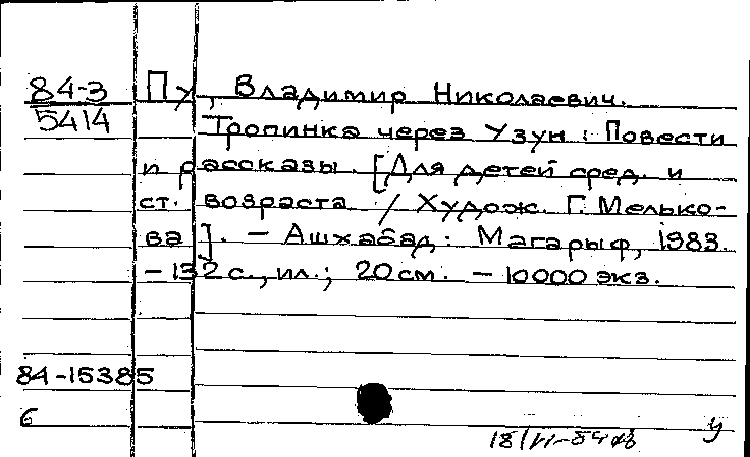 84-3 Пу, Владимир Николаевич.
5414 Тропинка через Узун : Повести
и рассказы. [Для детей сред. и
ст. возраста / Худож. Г. Мелько-
ва]. - Ашхабад : Магарыф, 1983.
- 132 с., ил. ; 20 см. - 10000 экз.
84-15385
б
у